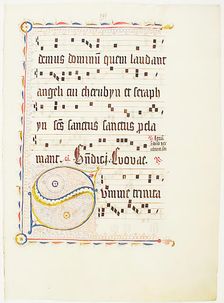 demus dominū quem laudant
angeli cui cherubyn et seraph
yn scs sanctus sanctus procla
mant. Euouae.
Summe trinita